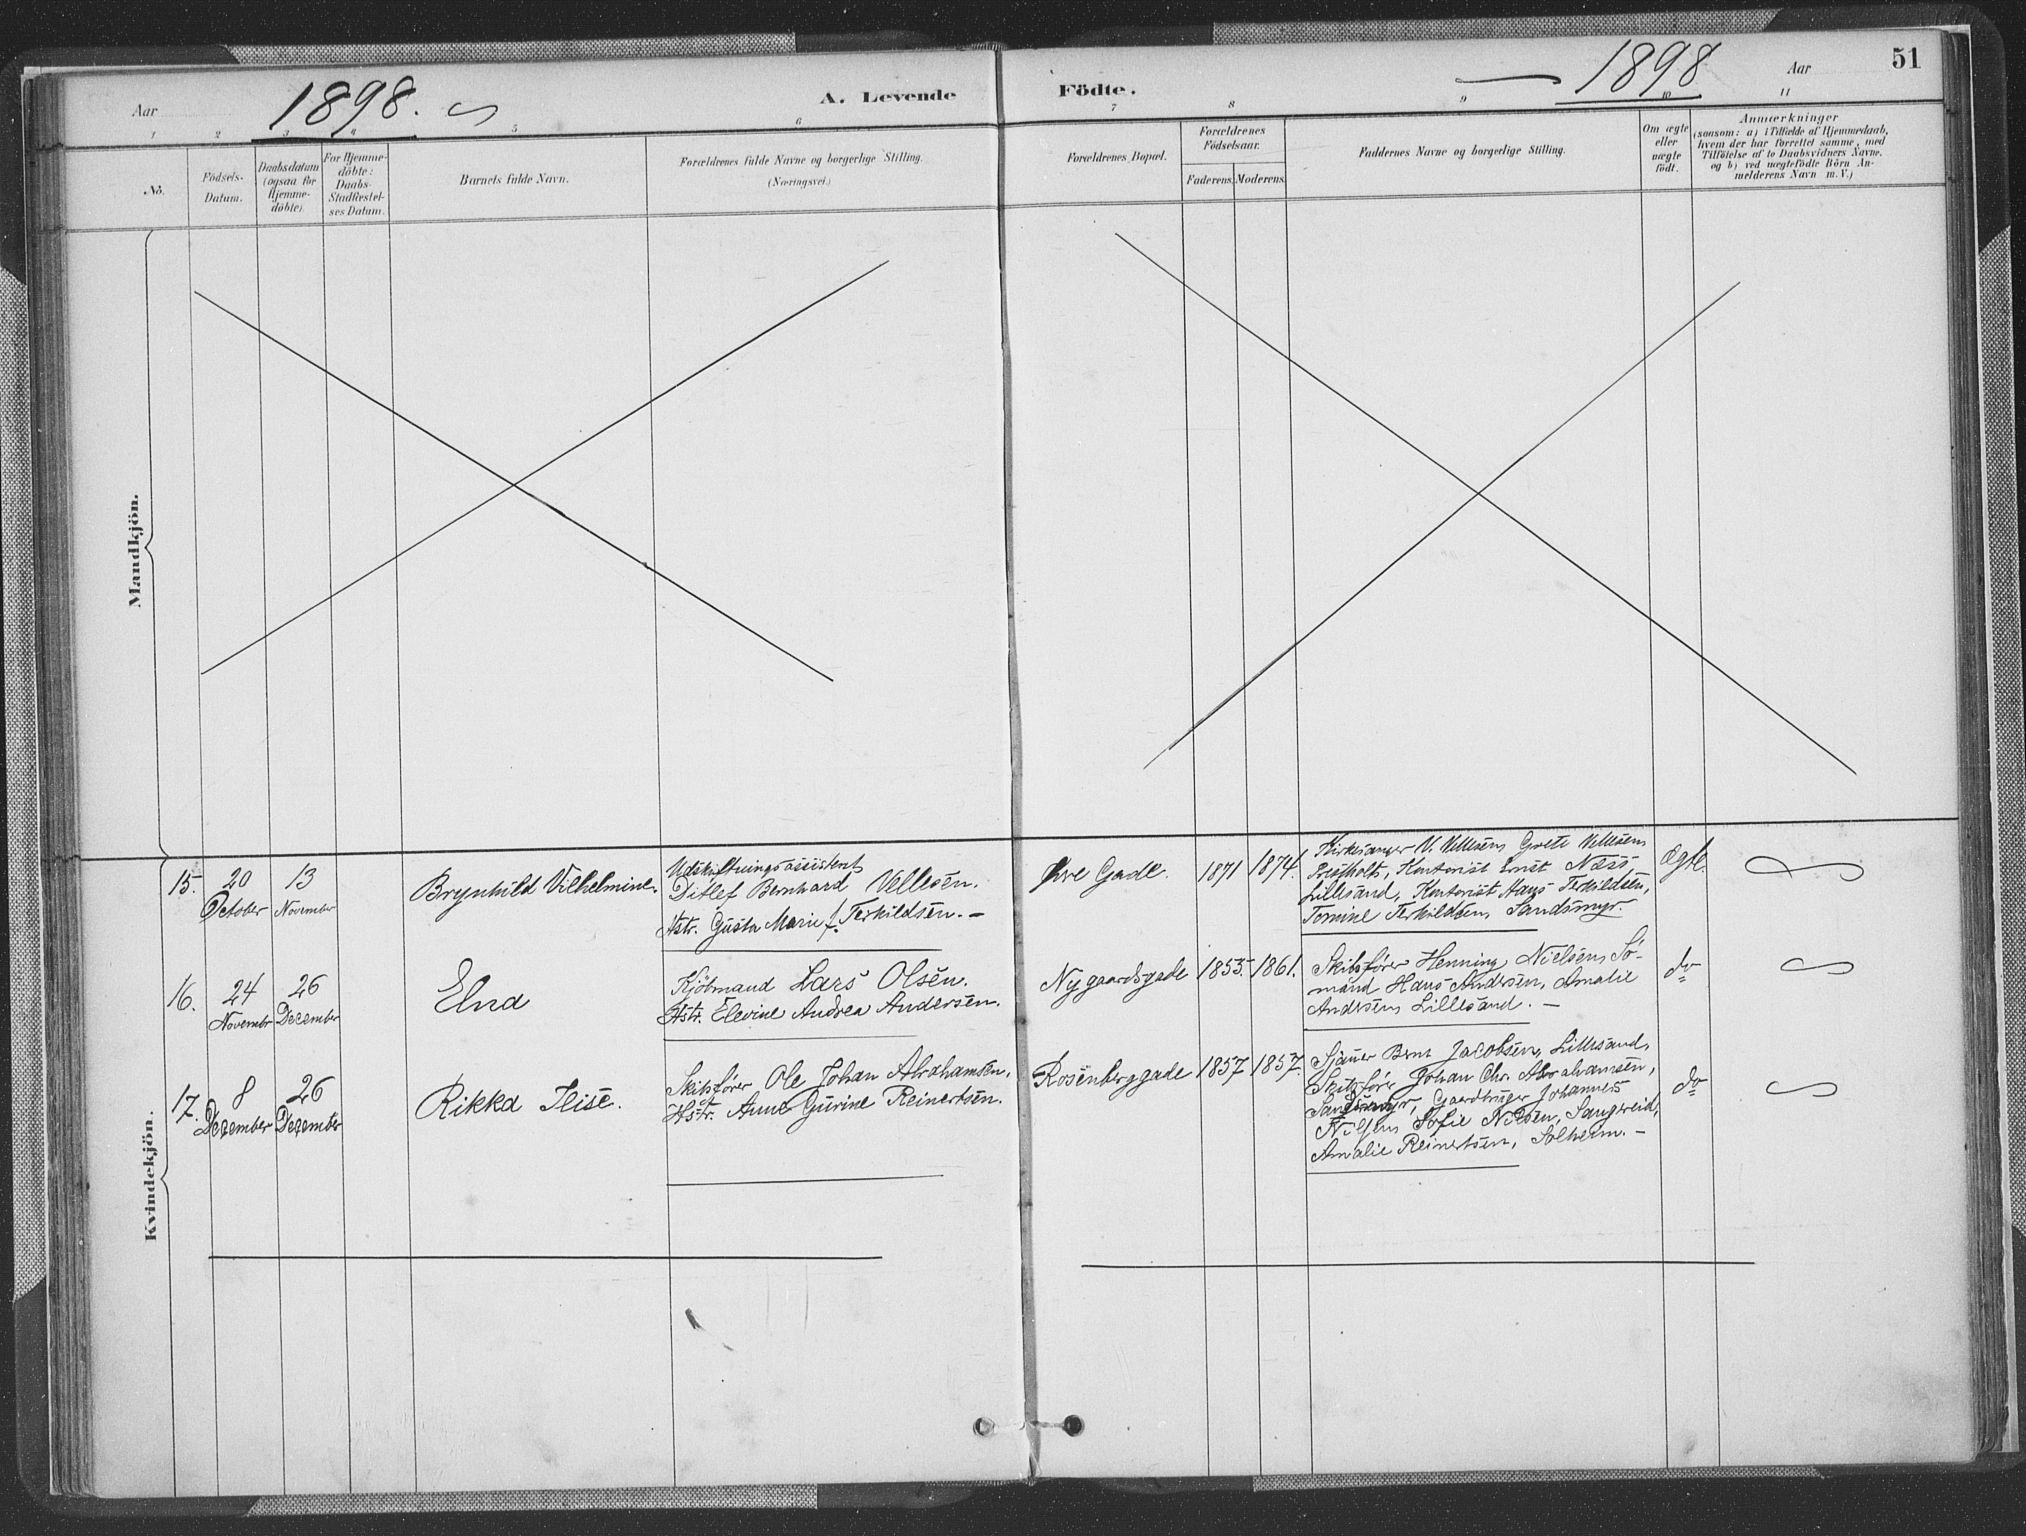 Aar 1898. A. Levende Födte. 1898 Aar 51
1 2 3 4 5 6 7 8 9 10 11
Nö.
Födsels-
Datum.
Daabsdatum
(ogsaa for
Hjemme-
döbte).
For Hjemme-
döbte:
Daabs-
Stadfæstel-
ses Datum.
Barnets fulde Navn.
Forældrenes fulde Navne og borgerlige Stilling.
(Næringsvei.)
Forældrenes Bopæl.
Forældrenes
Födselsaar.
Faderens. Moderens.
Faddernes Navne og borgerlige Stilling.
Om ægte
eller
uægte
födt.
Anmærkninger
(saasom: a) i Tilfælde af Hjemmedaab,
hvem der har forrettet samme, med
Tilföielse af to Daabsvidners Navne.
og b) ved uægtefödte Börn An-
melderens Navn m. V.)
Mandkjön.
Kvindekjön.
15.
20
October
13
November
Brynhild Vilhelmine.
Udskiftningsassistent
Ditlef Bernhard Vellesen.
Hstr. Gusta Marie f. Terkildsen. –
Øvre Gade.
1871
1874.
Kirkesanger V. Vellesen, Grete Vellesen
Kontorist Næss
Lillesand, Kontorist Hans Terkildsen,
Tomine Terkildsen, Sandsmyr.
Ægte.
16.
24
Novembr
26
December
Elna
Kjöbmand Lars Olsen.
Hstr. Elevine Andrea Andersen.
Nygaardsgade
1855.
1861.
Skibsfører Henning Nielsen, Sø-
mand Hans Andersen, Amalie
Andersen, Lillesand. –
do
17.
8
Dezember
26
Dezember
Rikka Ilise.
Skibsfører Ole Johan Abrahamsen,
Hstr. Anne Gurine Reinertsen.
Rosenberggade
1857
1857.
Sjauer Bernt Jacobsen, Lillesand,
Skibsfører Johan Chr. Abrahamsen,
Sandsmyr, Gaardbruger Johannes
Nilsen, Sofie Nilsen, Sangereid,
Amalie Reinertsen, Solheim. –
do